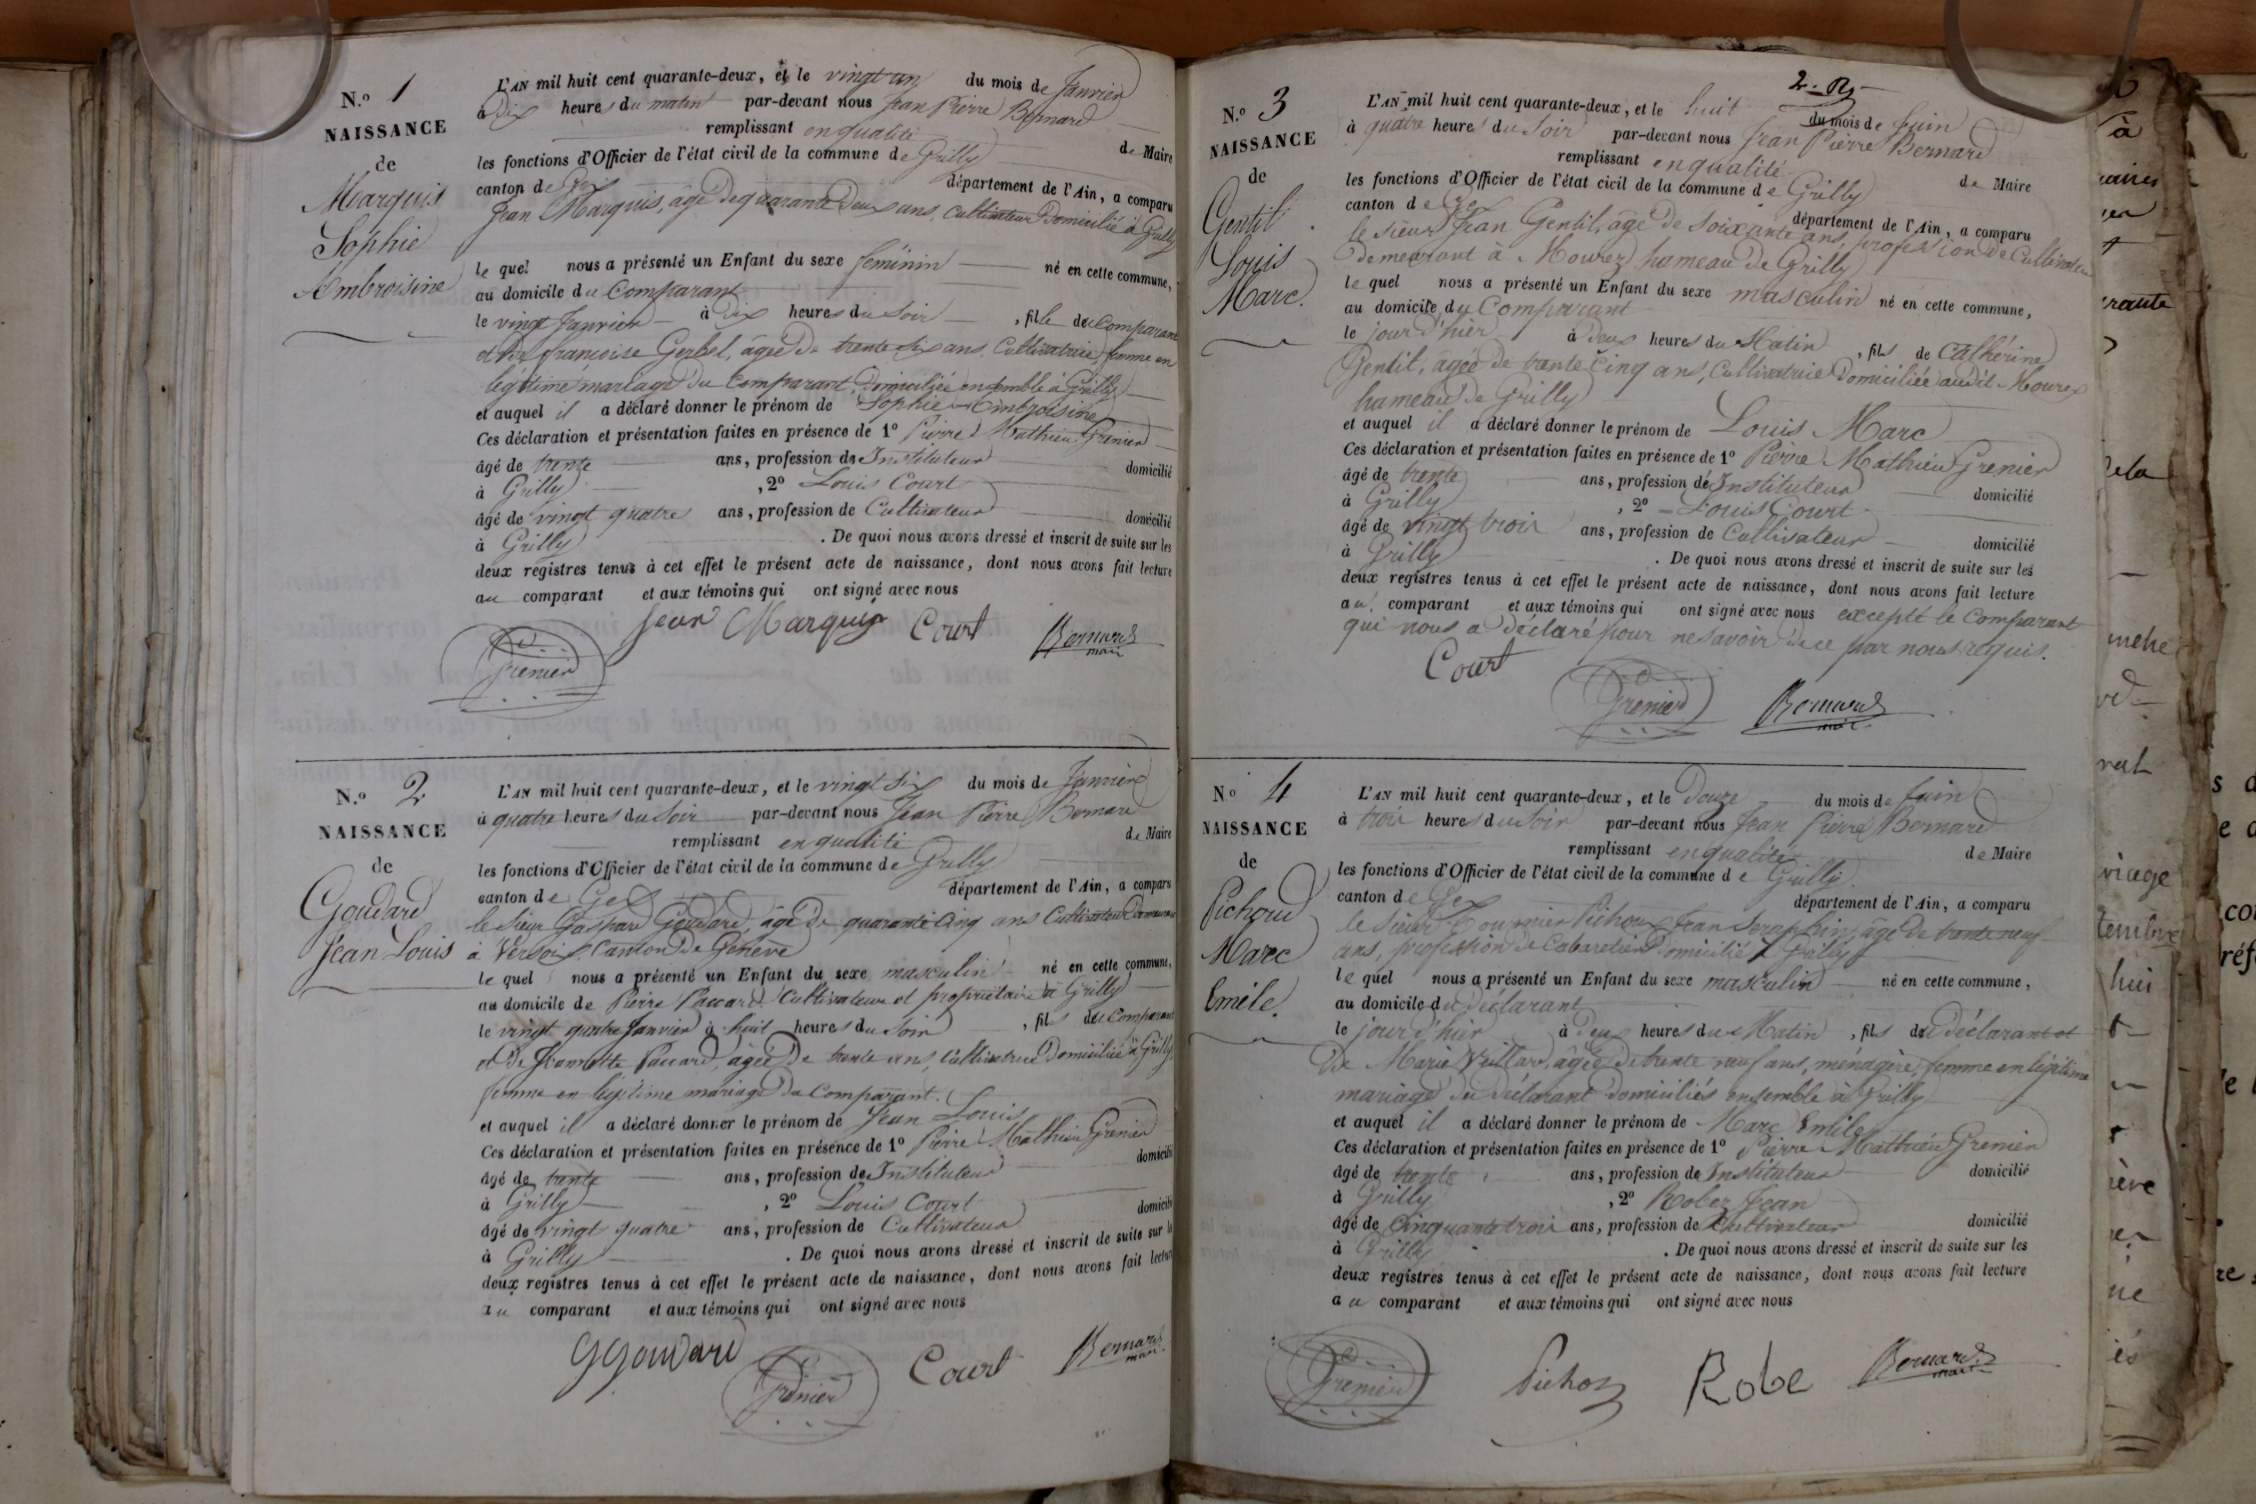 N.º 1
NAISSANCE
de
Marquis
Sophie
Ambroisine
L'AN mil huit cent quarante-deux, et le vingt un du mois de Janvier
à Dix heures du matin par-devant nous Jean Pierre Bernard
remplissant en qualité de Maire
les fonctions d'Officier de l'état civil de la commune de Grilly
canton de Gex département de l'Ain, a comparu
Jean Marquis, âgé de quarante Deux ans, cultivateur Domicilié à Grilly
le quel nous a présenté un Enfant du sexe féminin né en cette commune,
au domicile du Comparant
le vingt Janvier à dix heures du soir, fille du Comparant
et de françoise Gerbel, âgée de trente six ans, Cultivatrice femme en
légitime mariage du Comparant, Domiciliée ensemble à Grilly
et auquel il a déclaré donner le prénom de Sophie Ambroisine
Ces déclaration et présentation faites en présence de 1º Pierre Mathieu Grenier
âgé de trente ans, profession de Instituteur domicilié
à Grilly, 2º Louis Court
âgé de vingt quatre ans, profession de Cultivateur domicilié
à Grilly. De quoi nous avons dressé et inscrit de suite sur les
deux registres tenus à cet effet le présent acte de naissance, dont nous avons fait lecture
au comparant et aux témoins qui ont signé avec nous
Jean Marquis Court Bernard
maire
Grenier
N.º 2
NAISSANCE
de
Goudard
Jean Louis
L'AN mil huit cent quarante-deux, et le vingt six du mois de Janvier
à quatre heures du soir par-devant nous Jean Pierre Bernard
remplissant en qualité de Maire
les fonctions d'Officier de l'état civil de la commune de Grilly
canton de Gex département de l'Ain, a comparu
le sieur Gaspard Goudard, âgé de quarante Cinq ans Cultivateur Demeurant
à Versoix Canton de Genève
le quel nous a présenté un Enfant du sexe masculin né en cette commune,
au domicile de Pierre Paccard Cultivateur et propriétaire à Grilly
le vingt quatre Janvier à huit heures du soir, fils du Comparant
et de Jeannette Paccard, âgée de trente ans, Cultivatrice Domiciliée à Grilly
femme en légitime mariage du Comparant.
et auquel il a déclaré donner le prénom de Jean Louis
Ces déclaration et présentation faites en présence de 1º Pierre Mathieu Grenier
âgé de trente ans, profession de Instituteur domicilié
à Grilly, 2º Louis Court
âgé de vingt quatre ans, profession de Cultivateur domicilié
à Grilly. De quoi nous avons dressé et inscrit de suite sur les
deux registres tenus à cet effet le présent acte de naissance, dont nous avons fait lecture
au comparant et aux témoins qui ont signé avec nous
G Goudard Grenier Court Bernard
maire
N.º 3
NAISSANCE
de
Gentil
Louis
Marc.
L'AN mil huit cent quarante-deux, et le huit du mois de Juin
à quatre heures du soir par-devant nous Jean Pierre Bernard
remplissant en qualité de Maire
les fonctions d'Officier de l'état civil de la commune de Grilly
canton de Gex département de l'Ain, a comparu
le sieur Jean Gentil, âgé de soixante ans, profession de Cultivateur
demeurant à Mourex hameau de Grilly
le quel nous a présenté un Enfant du sexe masculin né en cette commune,
au domicile du Comparant
le jour d'hier à deux heures du Matin, fils de Cathérine
Gentil, âgée de trente Cinq ans, Cultivatrice Domiciliée audit Mourex
hameau de Grilly
et auquel il a déclaré donner le prénom de Louis Marc
Ces déclaration et présentation faites en présence de 1º Pierre Mathieu Grenier
âgé de trente ans, profession de Instituteur domicilié
à Grilly, 2º Louis Court
âgé de vingt trois ans, profession de Cultivateur domicilié
à Grilly. De quoi nous avons dressé et inscrit de suite sur les
deux registres tenus à cet effet le présent acte de naissance, dont nous avons fait lecture
au comparant et aux témoins qui ont signé avec nous excepté le Comparant
qui nous a déclaré pour ne savoir de ce par nous requis.
Court Grenier Bernard
maire
N.º 4
NAISSANCE
de
Pichoud
Marc
Emile.
L'AN mil huit cent quarante-deux, et le Douze du mois de Juin
à trois heures du soir par-devant nous Jean Pierre Bernard
remplissant en qualité de Maire
les fonctions d'Officier de l'état civil de la commune de Grilly
canton de Gex département de l'Ain, a comparu
le sieur Tournier Pichoux Jean Seraphin, âgé de trente neuf
ans, profession de Cabaretier Domicilié à Grilly
le quel nous a présenté un Enfant du sexe masculin né en cette commune,
au domicile du Déclarant
le jour d'hier à deux heures du Matin, fils du déclarant et
De Marie Veillard, âgée de trente neuf ans, ménagère, femme en légitime
mariage du déclarant Domiciliés ensemble à Grilly
et auquel il a déclaré donner le prénom de Marc Emile
Ces déclaration et présentation faites en présence de 1º Pierre Mathieu Grenier
âgé de trente ans, profession de Instituteur domicilié
à Grilly, 2º Robez Jean
âgé de Cinquante trois ans, profession de Cultivateur domicilié
à Grilly. De quoi nous avons dressé et inscrit de suite sur les
deux registres tenus à cet effet le présent acte de naissance, dont nous avons fait lecture
au comparant et aux témoins qui ont signé avec nous
Grenier Pichoz Robe Bernard
maire